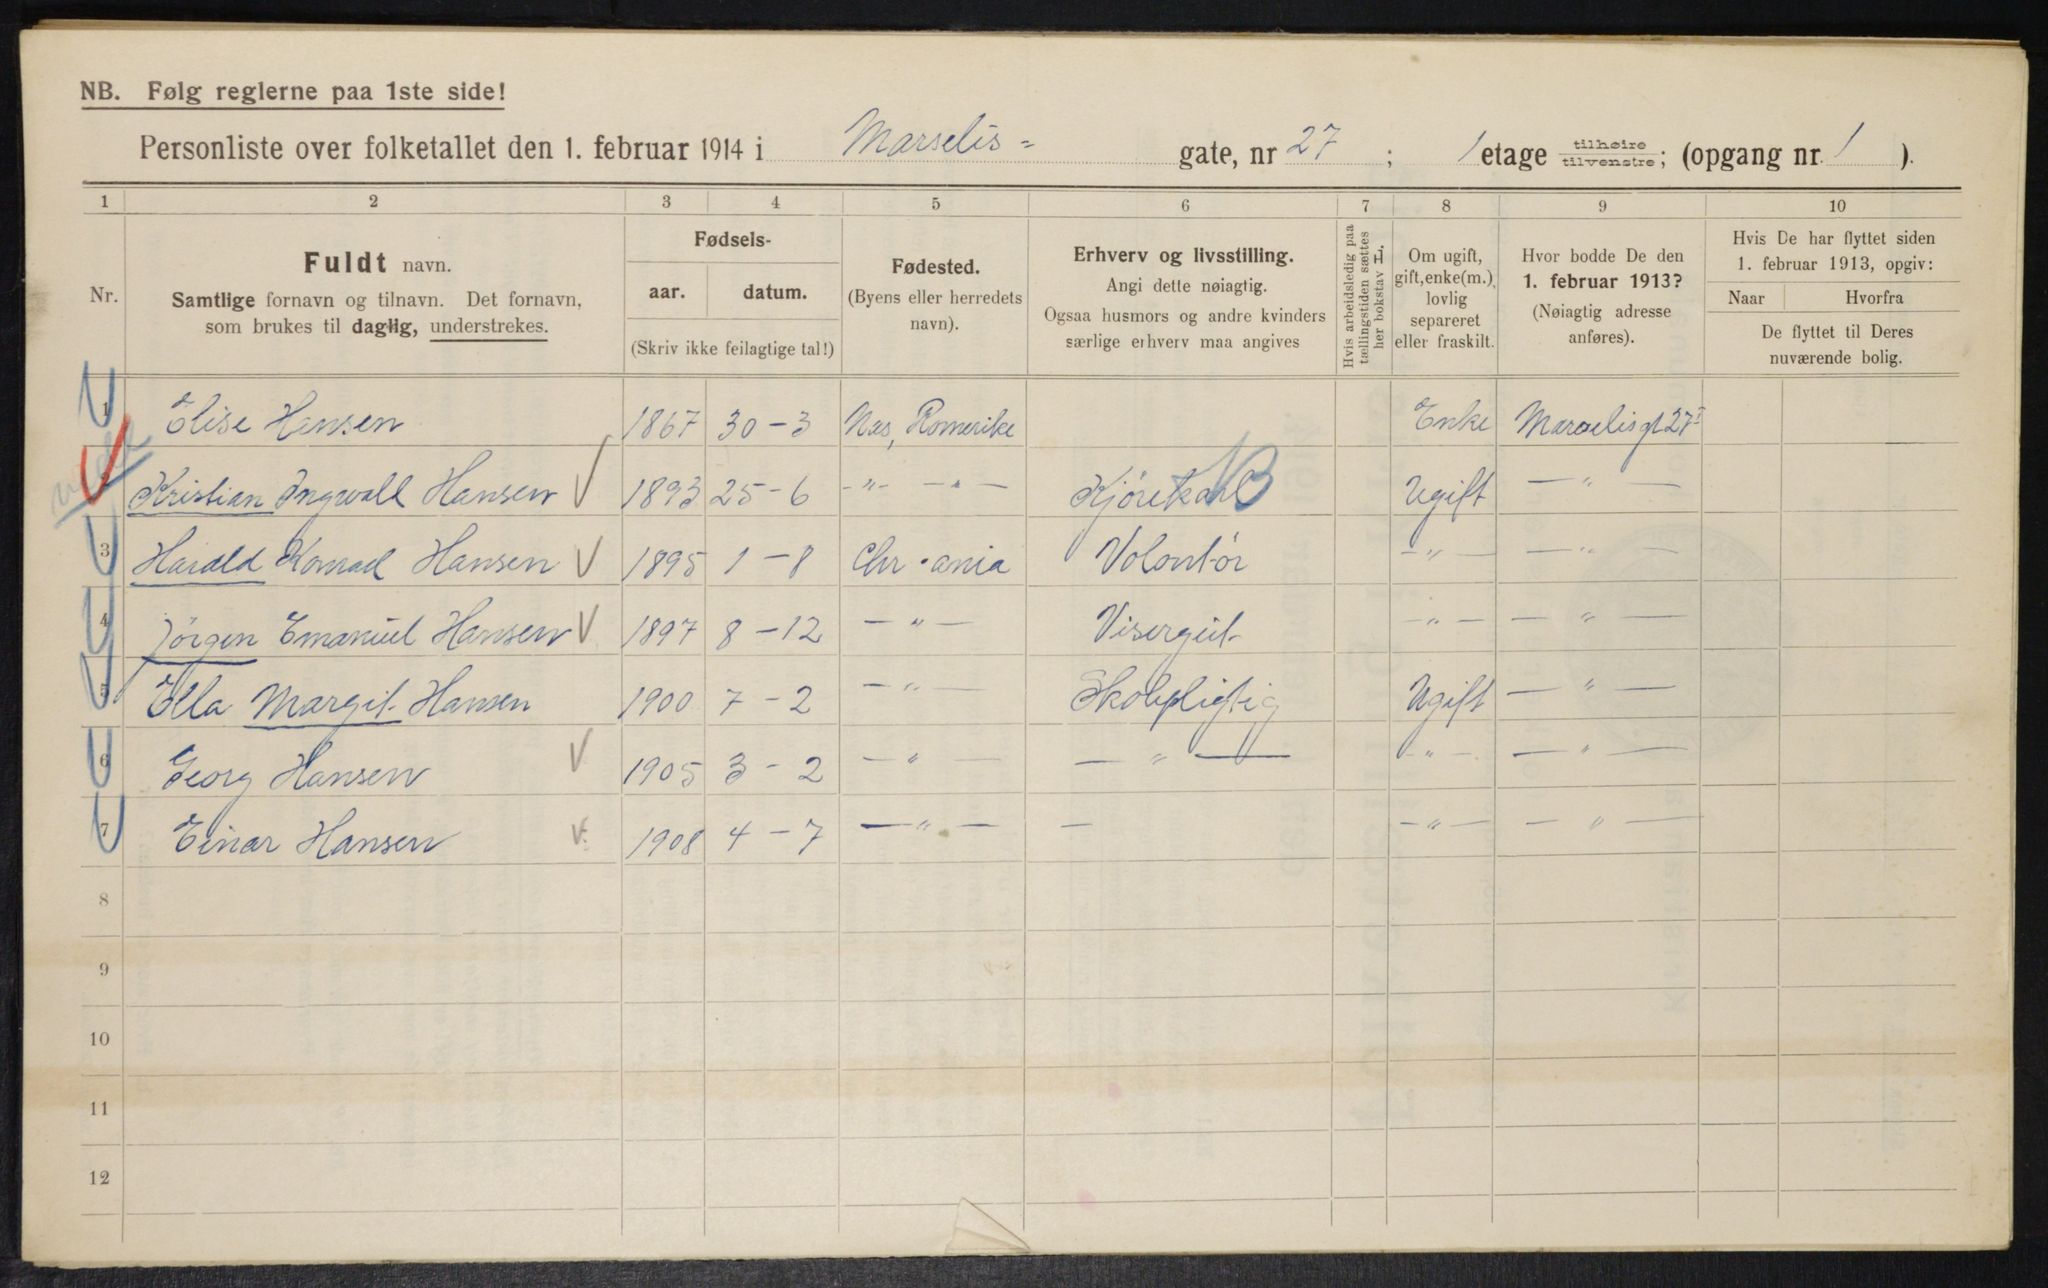 NB. Følg reglerne paa 1ste side!
Personliste over folketallet den 1. februar 1914 i Marselis- gate, nr 27 ; 1 etage tilhøire/tilvenstre; (opgang nr. 1 ).
1 2 3 4 5 6 7 8 9 10
Nr.
Fuldt navn.
Samtlige fornavn og tilnavn. Det fornavn,
som brukes til daglig, understrekes.
Fødsels-
aar. datum.
(Skriv ikke feilagtige tal!)
Fødested.
(Byens eller herredets
navn).
Erhverv og livsstilling.
Angi dette nøiagtig.
Ogsaa husmors og andre kvinders
særlige erhverv maa angives
Hvis arbeidsledig paa
tællingstiden sættes
her bokstav L.
Om ugift,
gift, enke(m.),
lovlig
separeret
eller fraskilt.
Hvor bodde De den
1. februar 1913?
(Nøiagtig adresse
anføres).
Hvis De har flyttet siden
1. februar 1913, opgiv:
Naar Hvorfra
De flyttet til Deres
nuværende bolig.
1 Elise Hansen 1867 30-3 Næs, Romerike Enke Marselisgt 27 I
2 Kristian Ingvall Hansen V 1893 25-6 -"- -"- Kjørekarl Ugift -"-
3 Harald Konrad Hansen V 1895 1-8 Chr.ania Volontør -"- -"-
4 Jørgen Emanuel Hansen V 1897 8-12 -"- Visergut -"- -"-
5 Ella Margit Hansen 1900 7-2 -"- Skolepligtig Ugift -"-
6 Georg Hansen V 1905 3-2 -"- -"- -"- -"-
7 Einar Hansen V 1908 4-7 -"- - -"- -"-
8
9
10
11
12